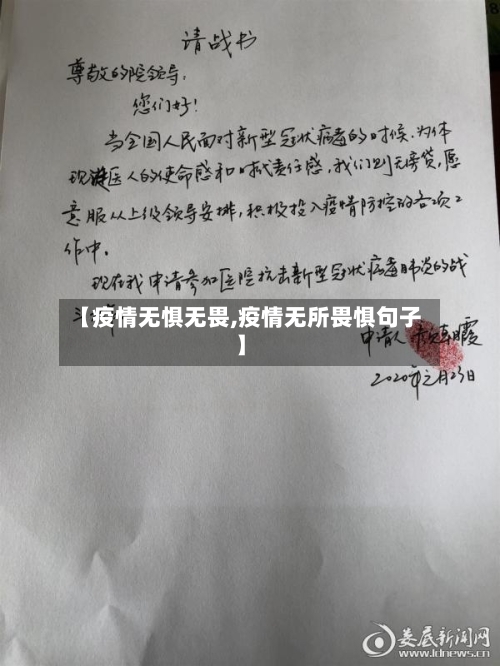 请战书
尊敬的院领导:
您们好!
当全国人民面对新型冠状病毒的时候,为体
现医人的使命感和时代责任感,我们责无旁贷,愿
意服从上级领导安排,积极投入疫情防控的各项工
作中。
现在我申请参加医院抗击新型冠状病毒肺炎的战
【疫情无惧无畏,疫情无所畏惧句子
】
申请人
2020年元月23日
娄底新闻网
www.ldnews.cn